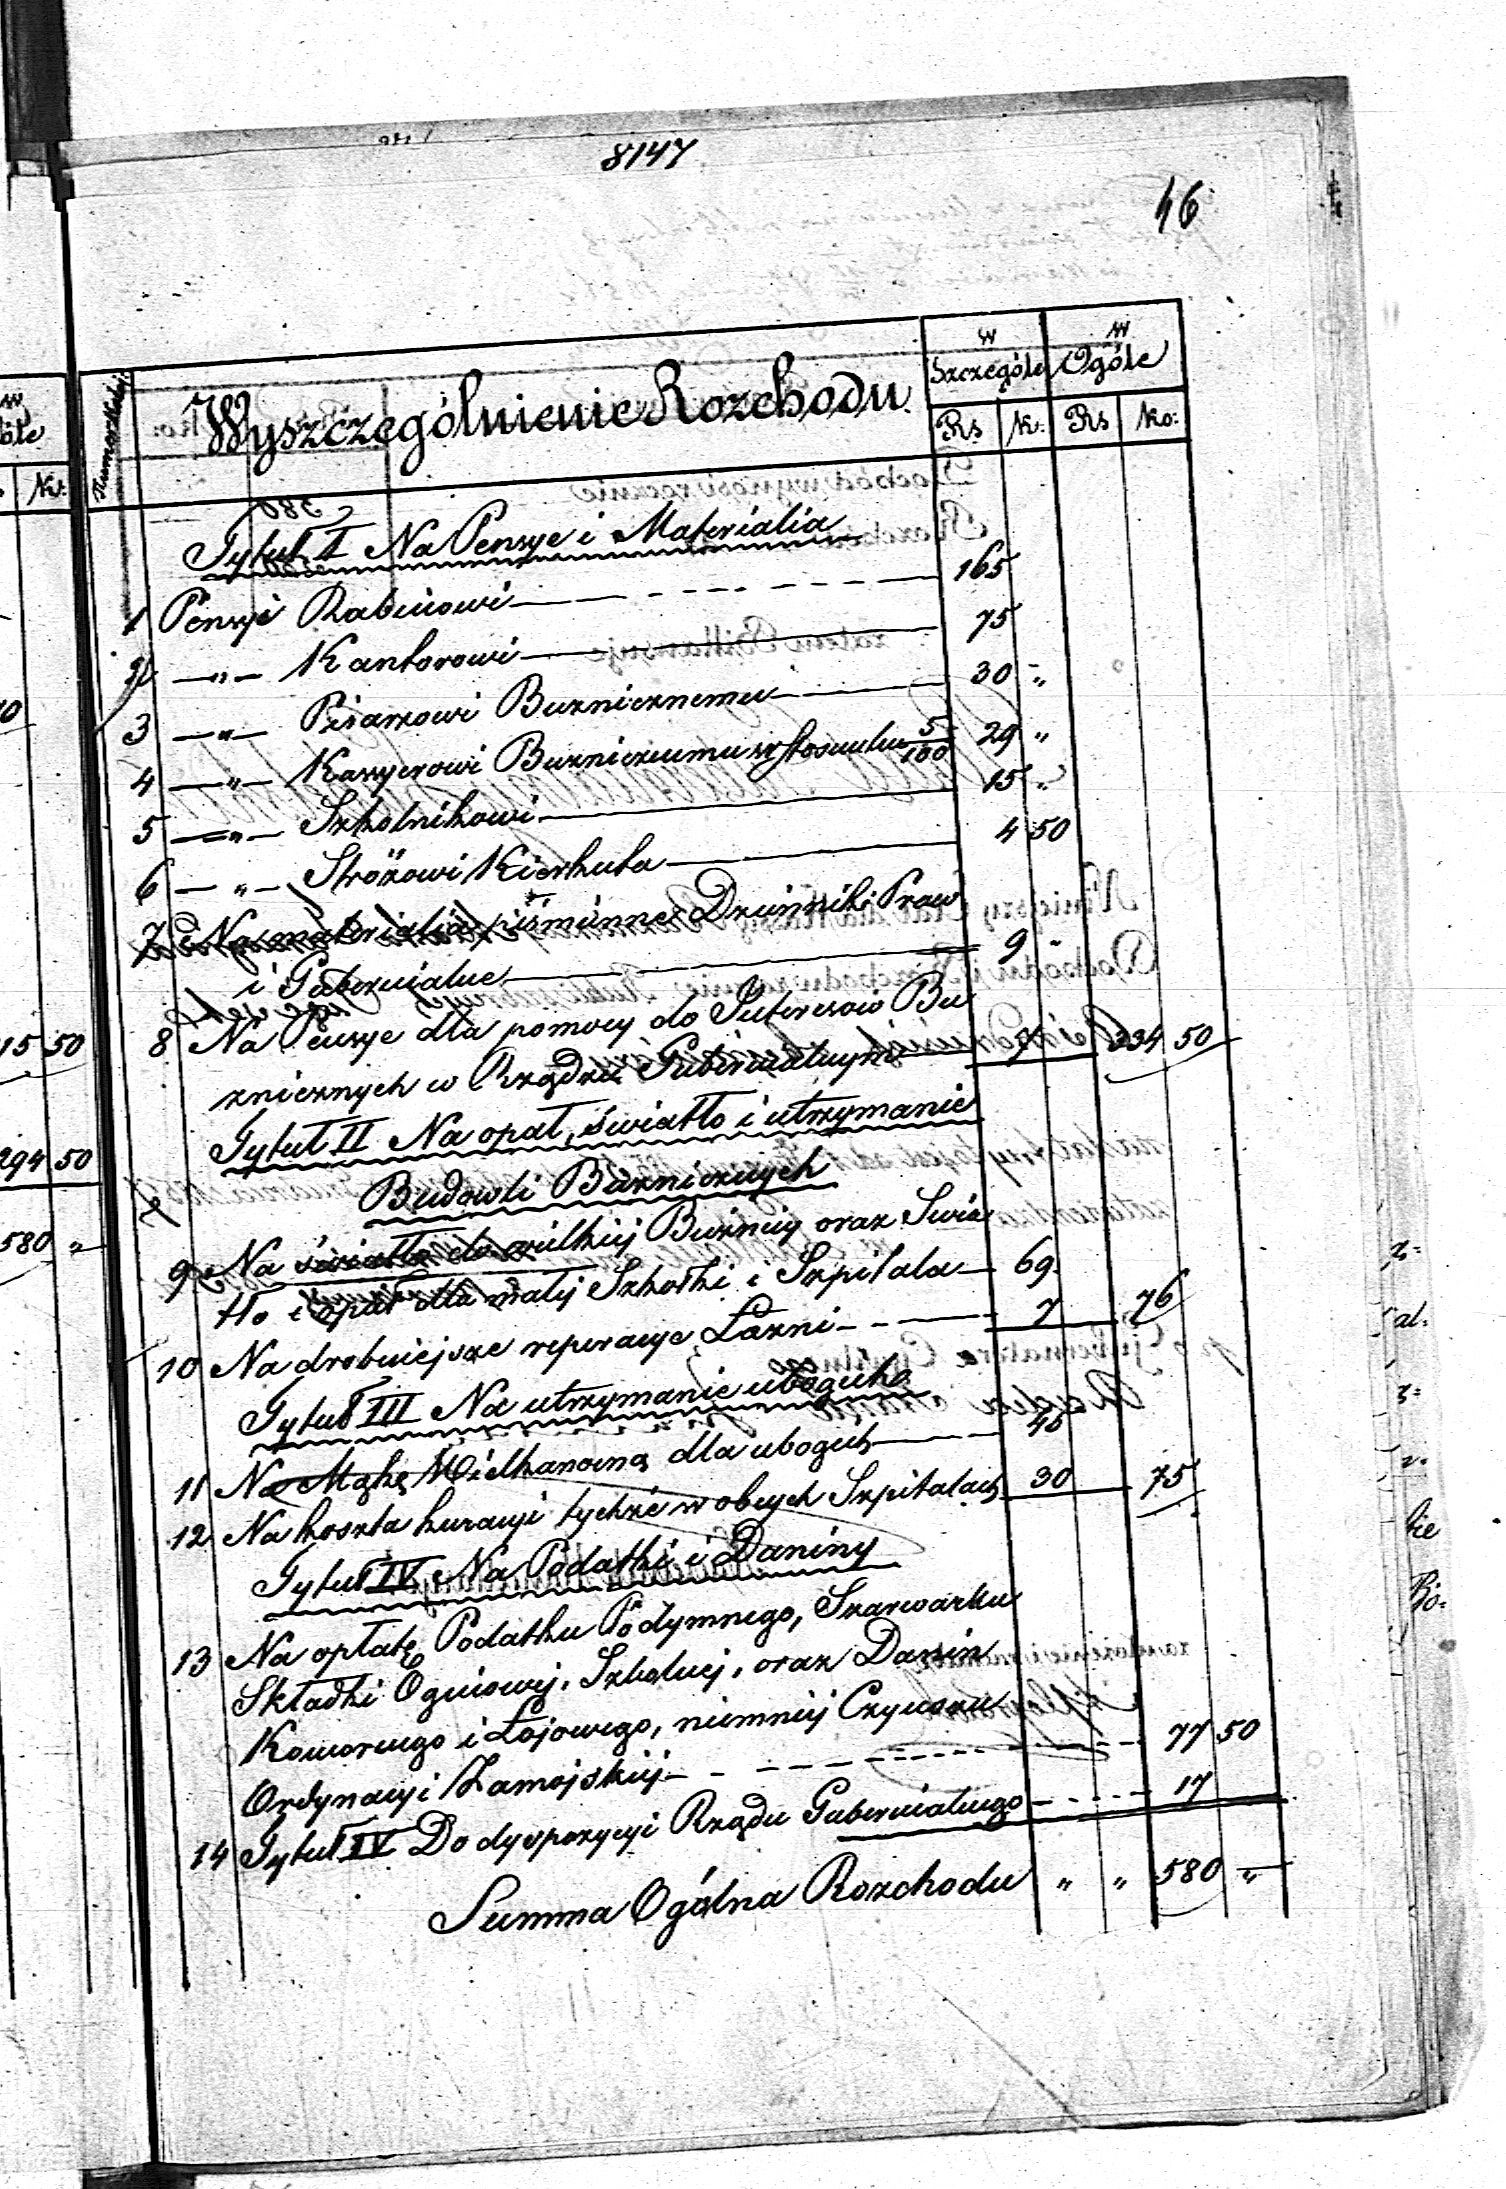 8147
46
w Szczególe
w Ogóle
Wyszczególnienie Rozchodu
Rs Ko: Rs Ko:
Tytuł I Na Pensye i Materialia
1 Pensyi Rabinowi 165
2 —„— Kantorowi 75
3 —„— Pisarzowi Bużnicznemu 30 „
4 —„— Kassyerowi Bużnicznemu w stosunku 5/100 29 „
5 —„— Szkolnikowi 15 „
6 —„— Stróżowi Kierkuta 4 50
7 Na materialia piśmienne Dzienniki Praw
i Gubernialne 9 „
8 Na Pensye dla pomocy do Interesów Bu
żnicznych w Rządzie Gubernialnym 7 334 50
Tytuł II Na opał, światło i utrzymanie
Budowli Bużnicznych
9 Na światło do wielkiej Bużnicy oraz Świa
tło i opał dla małej Szkółki i Szpitala 69
10 Na drobniejsze reperacye Łazni 7 76
Tytuł III Na utrzymanie ubogich
11 Na Mąkę Wielkanocną dla ubogich 45
12 Na koszta kuracyi tychże w obcych Szpitalach 30 75
Tytuł IV Na Podatki i Daniny
13 Na opłatę Podatku Podymnego, Szarwarku
Składki Ogniowej, Szkolnej, oraz Danin
Kominego i Łojowego, niemniej Czynszu
Ordynacyi Zamojskiej 77 50
14 Tytuł IV Do dyspozycyi Rządu Gubernialnego 17
Summa Ogólna Rozchodu „ „ 580 „
15 50
294 50
580 „